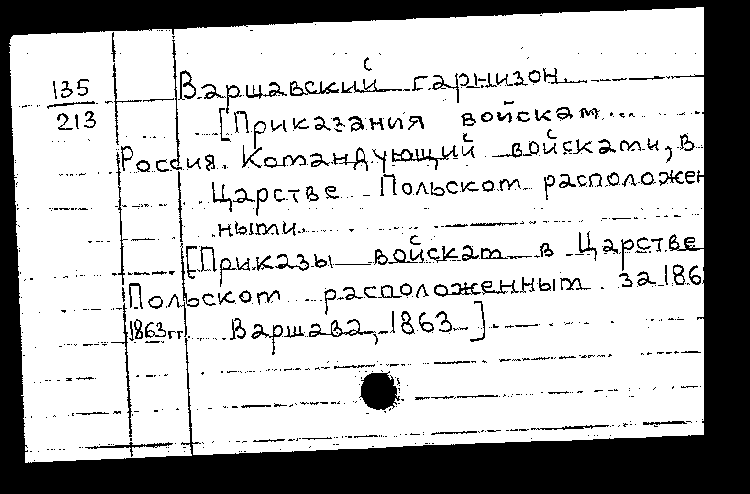 135
213
Варшавский гарнизон.
[Приказания войскам...
Россия. Командующий войсками, в
Царстве Польском расположен
ными.
[Приказы войскам в Царстве
Польском расположенным за 186
1863 гг. Варшава, 1863]